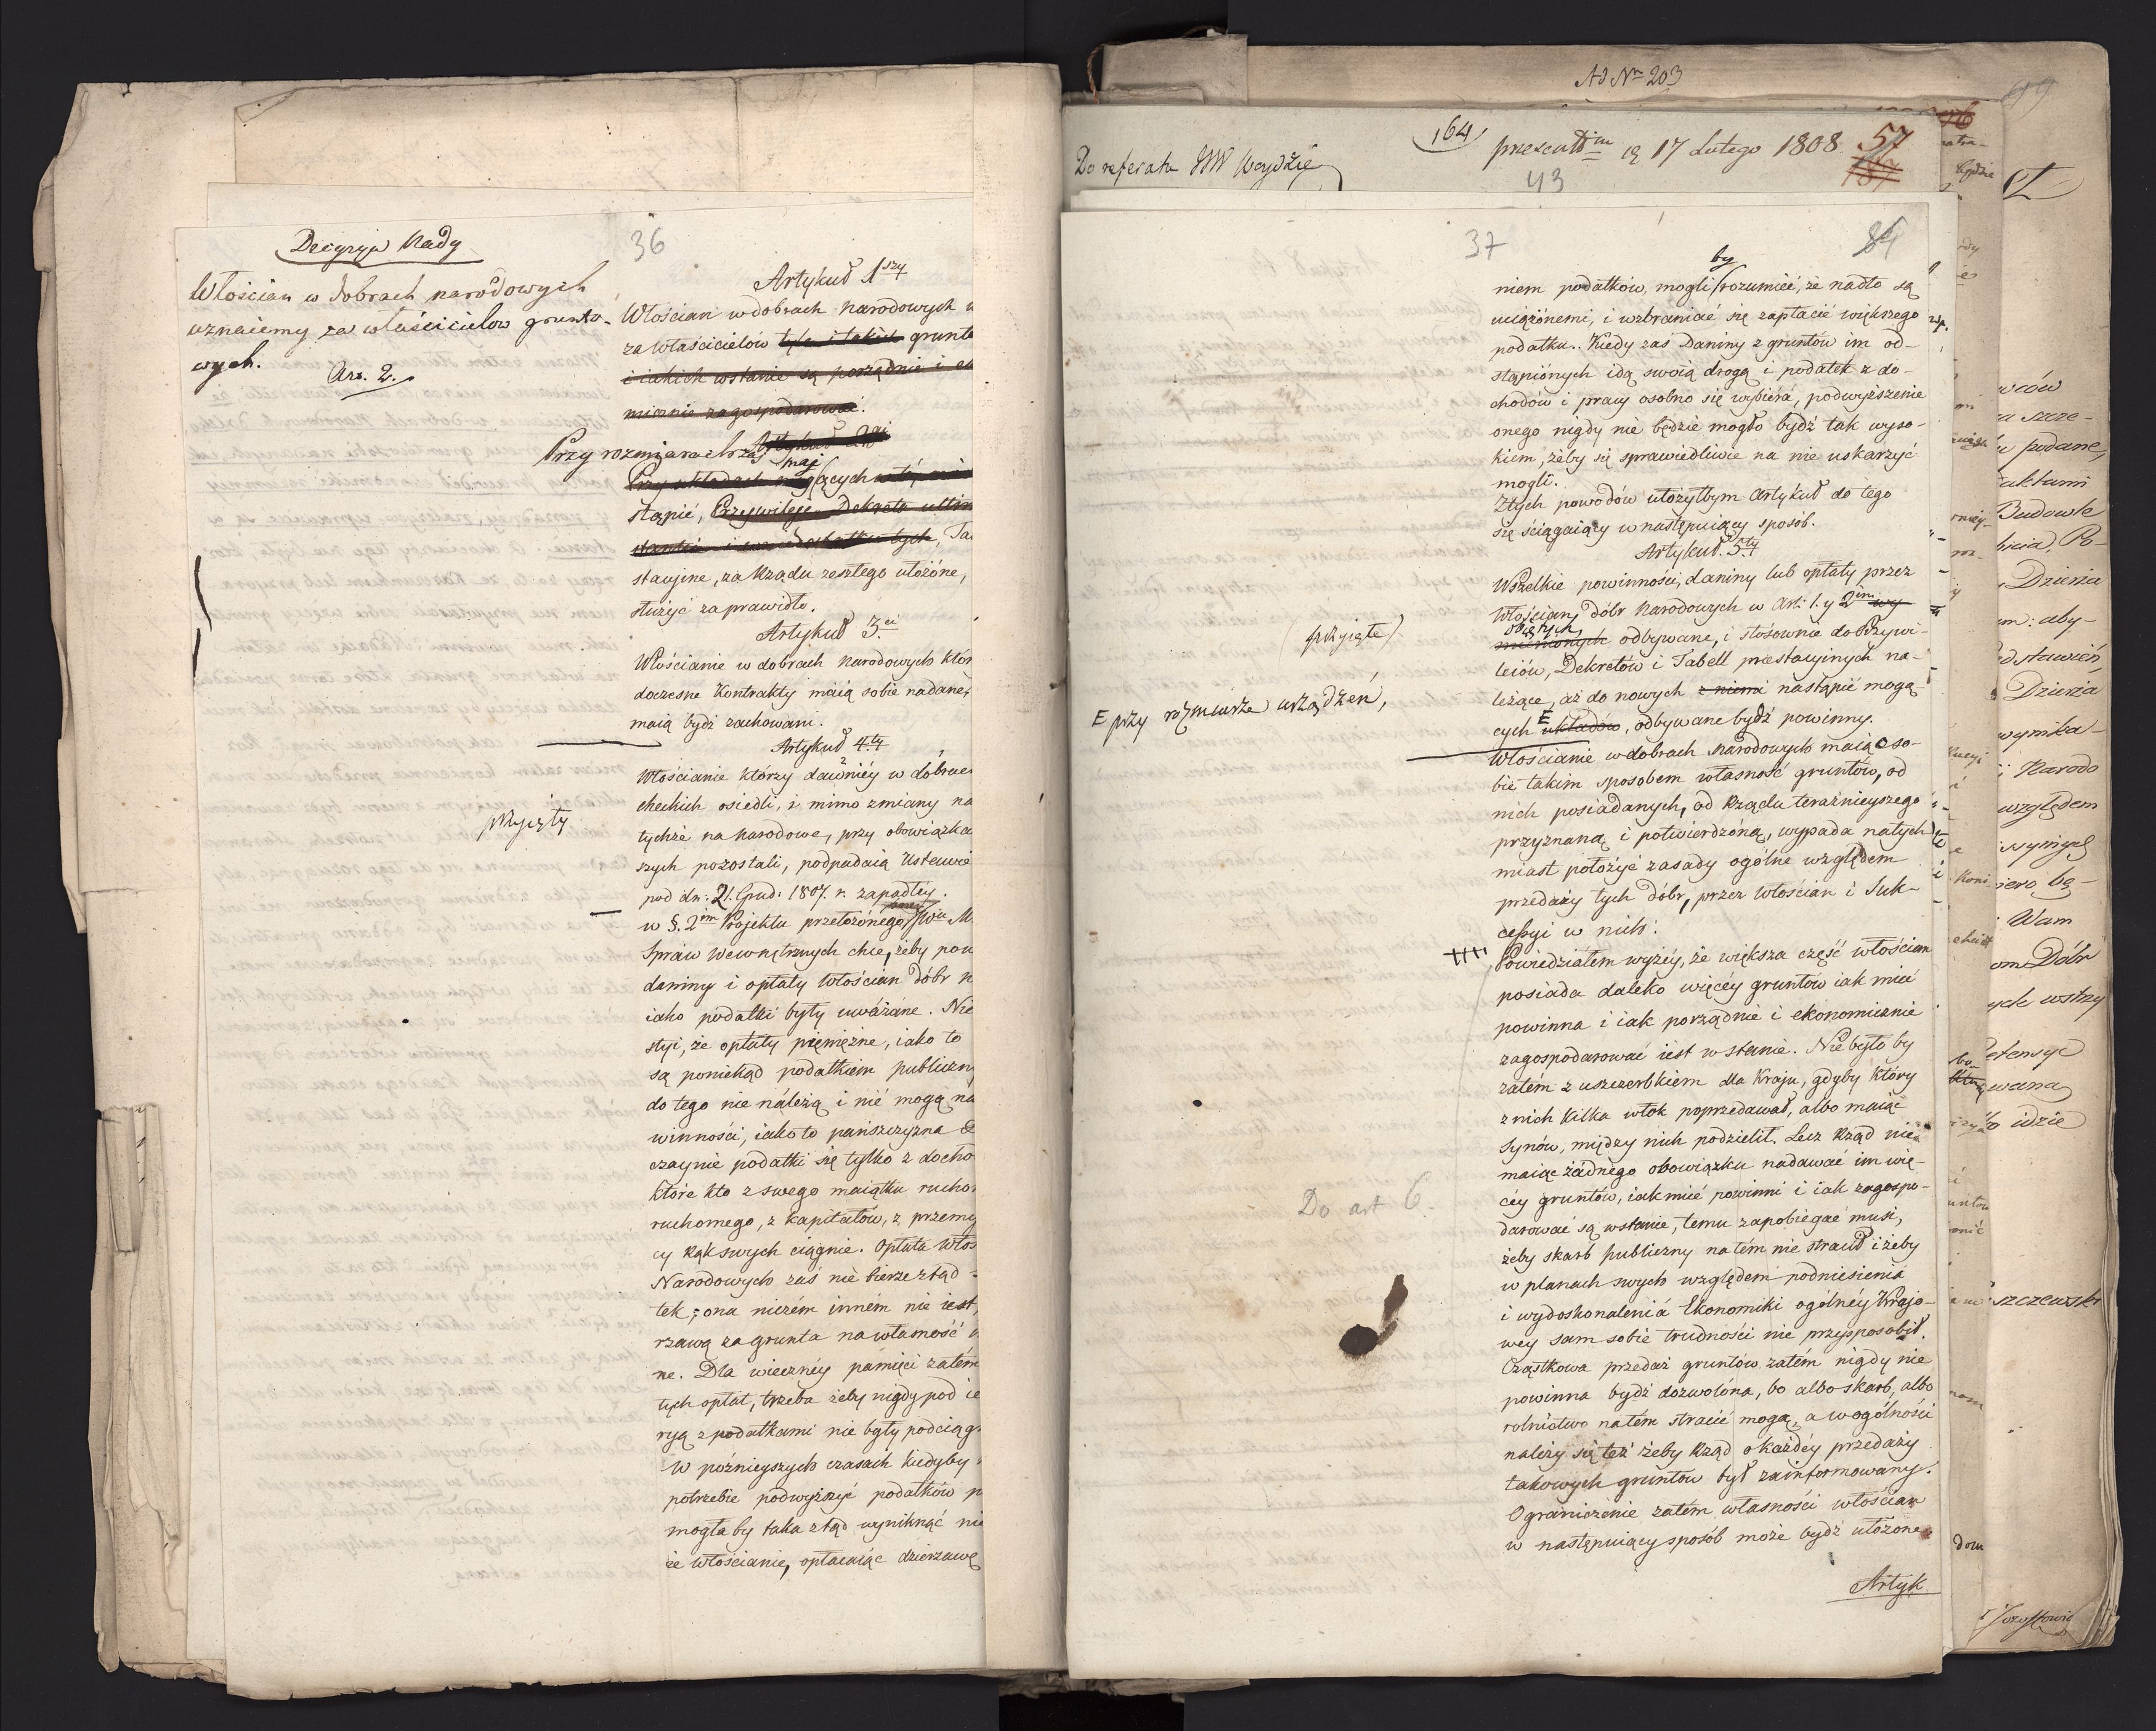 Decyzyja Rady
Włościan w dobrach narodowych
uznaiemy za właścicielow grunto-
wych.
Art. 2.
przyięty
36
Artykuł 1szy
Włościan w dobrach Narodowych
za właścicielów tyle i takich grunt
i iakich wstanie są porządnie i ek
micznie zagospodarować.
Artykuł 2gi
Przy rozmiarach zaś
Przy układach maiących
stąpić, Przywileje Dekreta
stacyine, za Rządu zeszłego ułożóne,
służyć za prawidło.
Artykuł 3ci
Włościanie w dobrach narodowych któr
doczesne Kontrakty maią sobie nadane,
maią bydź zachowani.
Artykuł 4ty
Włościanie którzy dawniéy w dóbrac
checkich osiedli, i mimo zmiany na
tychże na Narodowe, przy obowiązka
szych pozostali, podpadaią Ustawie
pod dn: 21. Grud: 1807. r. zapadłéy.
w §. 2im Projektu przełożónego M
Spraw Wewnętrznych chce, żeby pow
daniny i opłaty Włościan Dóbr n
iako podatki były uwáżáne. Nie
styi, że opłaty pięniężne, iako to
są poniekąd podatkiem publiczn
do tego nie náleżą i nié mogą na
winności, iako to pańszczyzna &
czaynie podatki się tylko z docho
które kto z swego maiątku rucho
ruchomego, z kapitałów, z przemy
cy rąk swych ciągnie. Opłata Włos
Narodowych zaś nie bierze ztąd
tek; ona niczém inném nie iest,
rżawą za grunta na własność
ne. Dla wieczney pamięci zatém
tych opłat, trzeba żeby nigdy pod ie
ryą z podatkami nie były podciąg
W póznieyszych czasach kiedyby
potrzebie podwyższyć podatków p
mogłaby taka ztąd wyniknąć nie
że Włościanie, opłacaiąc dzierżawę
Ad Nrn 203
164
Do referatu JW Woydzie
presentatim d 17 Lutego 1808
57
43
37
niem podatków, mogliby rozumieć, że nadto są
uciążónemi, i wzbraniać się zapłacić większego
podatku. Kiedy zas Daniny z gruntów im od-
stąpiónych idą swoią drogą i podatek z do-
chodów i pracy osobno się wybiérá, podwyższenie
onego nigdy nie będzie mogło bydź tak wyso-
kiem, żéby się sprawiedliwie na nie uskarżyć
mogli.
Z tych powodów ułożyłbym Artykuł do tego
się ściągaiący w następuiący sposób.
Artykuł 5ty
Wszelkie powinności, daniny lub opłaty przez
Włościany dóbr Narodowych w Art: 1. y 2im wy
obiętych
mienionych odbywane, i stósownie do Przywi-
leiów, Dekretów i Tabell prestacyjnych na-
leżące, aż do nowych z niemi nastąpić mogą-
cych E układów, odbywane bydź powinny.
(przyięte)
E przy rozmiarze urządzeń,
Włościanie w dobrach Narodowych maiąc so-
bie takim sposobem własność gruntów, od
nich posiadanych, od Rządu teraźnieyszego
przyznaną i potwierdzóną, wypada natych
miast położyć zasady ogólne względem
przedaży tych Dóbr, przez Włościan i Suk-
cessyi w nich.
Powiedziałem wyżéy, że większa część włościan
posiada daleko więcéy gruntów iak mieć
powinna i iak porządnie i ekonomicznie
zagospodarować iest w stanie. Nie było by
zatém z uszczerbkiem dla Kraju, gdyby który
z nich kilka włok poprzedawał, albo maiąc
Synów, między nich podzielił. Lecz Rząd nie
maiąc żadnego obowiązku nadawać im wię-
céy gruntów, iak mieć powinni i iak zagospo-
darować są wstanie, temu zapobiegać musi,
żeby skarb publiczny na tém nie stracił i żeby
w planach swych względem podniesienia
i wydoskonalenia Ekonomiki ogólnéy Krajo-
wey sam sobie trudności nie przysposobił.
Cząstkowa przedaż gruntów zatém nigdy nie
powinna bydź dozwolóna, bo albo skarb, albo
rolnictwo na tém stracić mogą, a w ogólności
należy się też żeby Rząd o każdéy przedaży
takowych gruntów był zainformowany.
Ograniczenie zatém własności włościan
w następuiący sposób może bydź ułożone.
Artyk
Do art 6.
99
wców
szcze-
podane,
aktami
Budowle
Po-
Dzierża
aby-
dstawień,
Dzierża
wynika-
Narodo
względem
bę-
Wam
om Dóbr
ych wstrzy
etensye
wana
idzie
szczewski